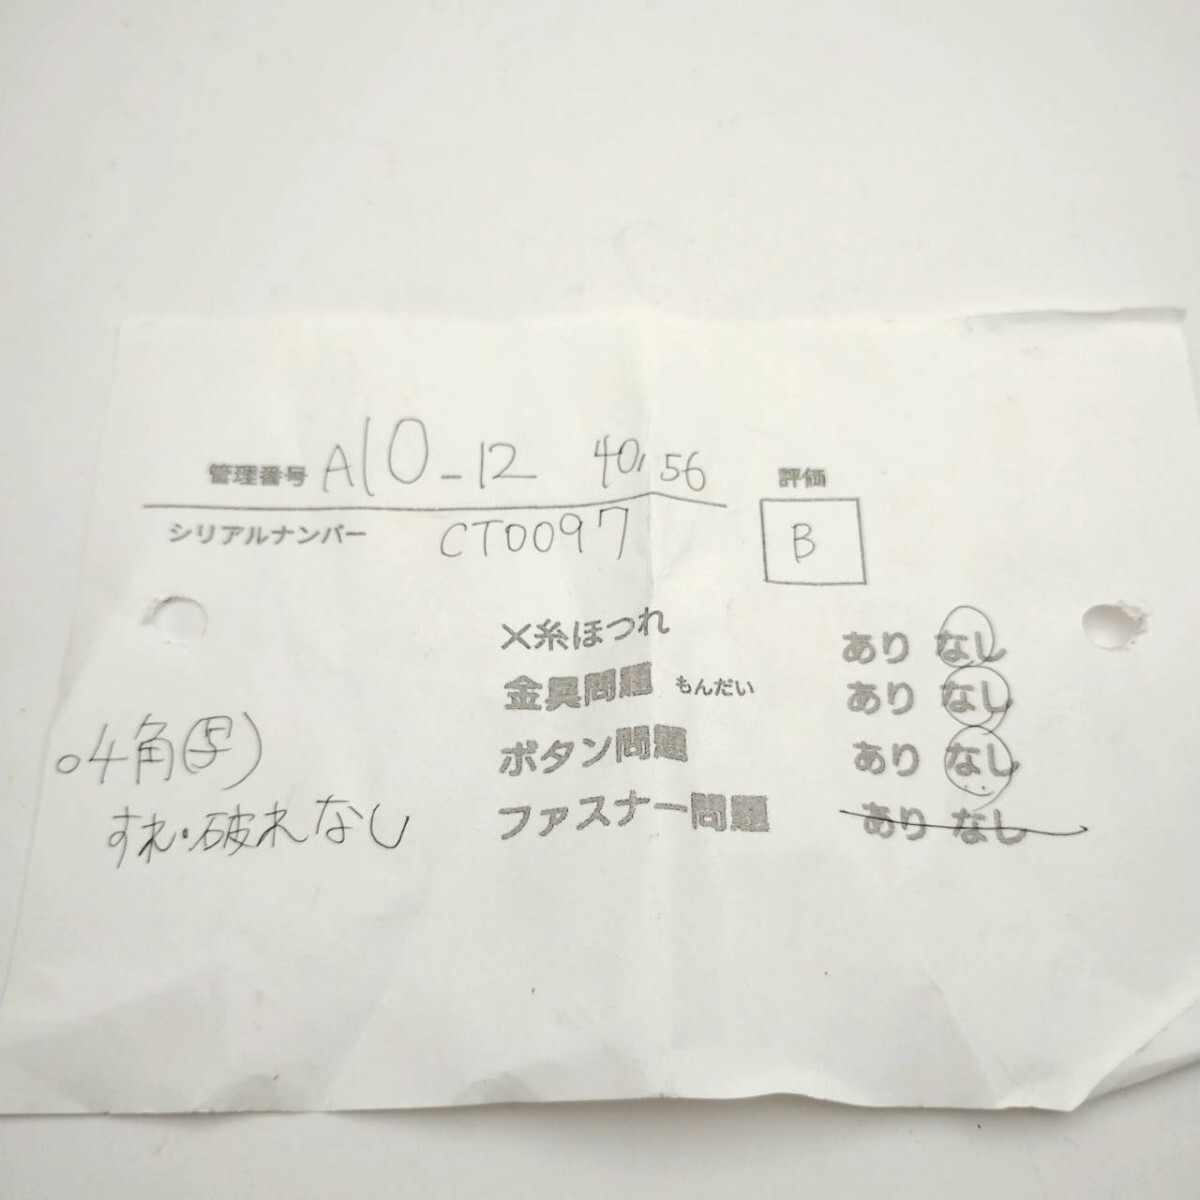 管理番号 A10-12 40,56
評価
シリアルナンバー CT0097
B
×糸ほつれ あり なし
金具問題 もんだい あり なし
ボタン問題 あり なし
ファスナー問題 あり なし
○4角
すれ・破れなし